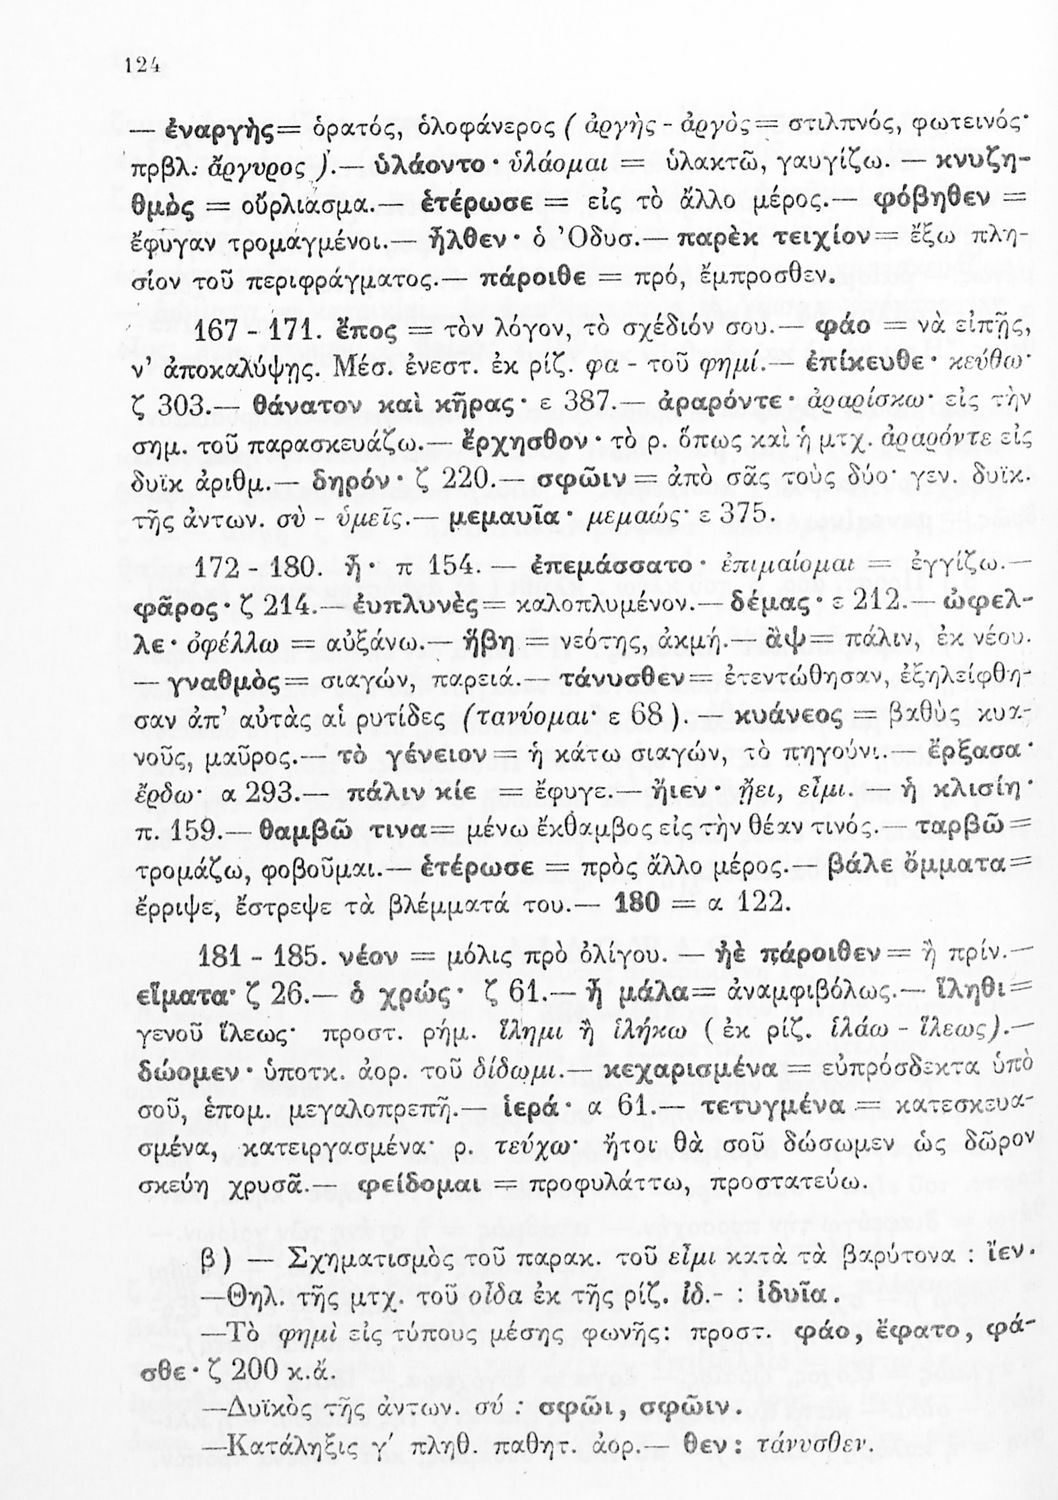 124
— ἐναργὴς= ὁρατός, ὁλοφάνερος ( ἀργὴς - ἀργὸς = στιλπνός, φωτεινός·
πρβλ.: ἄργυρος ).— ὑλάοντο· ὑλάομαι = ὑλακτῶ, γαυγίζω. — κνυζη-
θμὸς = οὔρλιασμα.— ἑτέρωσε = εἰς τὸ ἄλλο μέρος.— φόβηθεν =
ἔφυγαν τρομαγμένοι.— ἦλθεν· ὁ Ὀδυσ.— παρὲκ τειχίον= ἔξω πλη-
σίον τοῦ περιφράγματος.— πάροιθε = πρό, ἔμπροσθεν.
167 - 171. ἔπος = τὸν λόγον, τὸ σχέδιόν σου.— φάο = νὰ εἰπῇς,
ν' ἀποκαλύψῃς. Μέσ. ἐνεστ. ἐκ ρίζ. φα - τοῦ φημί.— ἐπίκευθε· κεύθω·
ζ 303.— θάνατον καὶ κῆρας· ε 387.— ἀραρόντε· ἀραρίσκω· εἰς τὴν
σημ. τοῦ παρασκευάζω.— ἔρχησθον· τὸ ρ. ὅπως καὶ ἡ μτχ. ἀραρόντε εἰς
δυϊκ ἀριθμ.— δηρόν· ζ 220.— σφῶιν = ἀπὸ σᾶς τοὺς δύο· γεν. δυϊκ.
τῆς ἀντων. σὺ - ὑμεῖς.— μεμαυῖα· μεμαώς· ε 375.
172 - 180. ἦ· π 154. — ἐπεμάσσατο· ἐπιμαίομαι = ἐγγίζω.—
φᾶρος· ζ 214.— ἐυπλυνὲς= καλοπλυμένον.— δέμας· ε 212.— ὤφελ-
λε· ὀφέλλω = αὐξάνω.— ἥβη = νεότης, ἀκμή.— ἂψ= πάλιν, ἐκ νέου.
— γναθμὸς= σιαγών, παρειά.— τάνυσθεν= ἐτεντώθησαν, ἐξηλείφθη-
σαν ἀπ' αὐτὰς αἱ ρυτίδες (τανύομαι· ε 68 ). — κυάνεος = βαθὺς κυα-
νοῦς, μαῦρος.— τὸ γένειον = ἡ κάτω σιαγών, τὸ πηγούνι.— ἔρξασα·
ἔρδω· α 293.— πάλιν κίε = ἔφυγε.— ἤιεν· ᾔει, εἶμι. — ἡ κλισίη·
π. 159.— θαμβῶ τινα= μένω ἔκθαμβος εἰς τὴν θέαν τινός.— ταρβῶ=
τρομάζω, φοβοῦμαι.— ἑτέρωσε = πρὸς ἄλλο μέρος.— βάλε ὄμματα=
ἔρριψε, ἔστρεψε τὰ βλέμματά του.— 180 = α 122.
181 - 185. νέον = μόλις πρὸ ὀλίγου. — ἠὲ πάροιθεν= ἢ πρίν.—
εἵματα· ζ 26.— ὁ χρώς· ζ 61.— ἦ μάλα= ἀναμφιβόλως.— ἵληθι=
γενοῦ ἵλεως· προστ. ρήμ. ἵλημι ἢ ἱλήκω ( ἐκ ρίζ. ἱλάω - ἵλεως).—
δώομεν· ὑποτκ. ἀορ. τοῦ δίδωμι.— κεχαρισμένα = εὐπρόσδεκτα ὑπὸ
σοῦ, ἑπομ. μεγαλοπρεπῆ.— ἱερά· α 61.— τετυγμένα = κατεσκευα-
σμένα, κατειργασμένα· ρ. τεύχω· ἤτοι θὰ σοῦ δώσωμεν ὡς δῶρον
σκεύη χρυσᾶ.— φείδομαι = προφυλάττω, προστατεύω.
β ) — Σχηματισμὸς τοῦ παρακ. τοῦ εἶμι κατὰ τὰ βαρύτονα : ἴεν.
—Θηλ. τῆς μτχ. τοῦ οἶδα ἐκ τῆς ρίζ. ἰδ.- : ἰδυῖα.
—Τὸ φημὶ εἰς τύπους μέσης φωνῆς: προστ. φάο, ἔφατο, φά-
σθε· ζ 200 κ.ἄ.
—Δυϊκὸς τῆς ἀντων. σύ : σφῶι, σφῶιν.
—Κατάληξις γ' πληθ. παθητ. ἀορ.— θεν: τάνυσθεν.